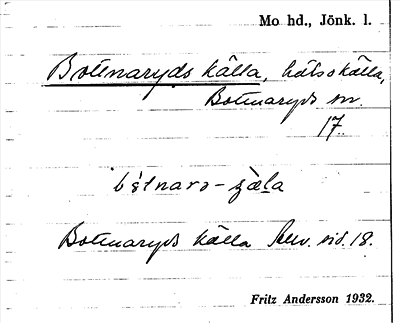 Mo hd., Jönk. l.
Bottnaryds källa, hälsokälla,
Bottnaryds sn.
17.
båtnars-çæla
Bottnaryds källa sid. 18.
Fritz Andersson 1932.